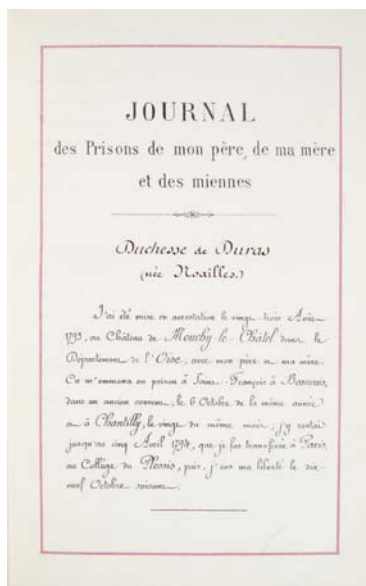 JOURNAL
des Prisons de mon père, de ma mère
et des miennes
Duchesse de Duras
(née Noailles.)
J'ai été mise en arrestation le vingt trois Août
1793, au Château de Mouchy-le-Châtel dans le
Département de l'Oise, avec mon père et ma mère.
On m'emmena en prison à Saint-François à Beauvais,
dans un ancien couvent, le 6 Octobre de la même année
et à Chantilly, le vingt du même mois; j'y restai
jusqu'au cinq Avril 1794, que je fus transférée à Paris,
au Collège du Plessis, puis, j'eus ma liberté le dix-
neuf Octobre suivant.